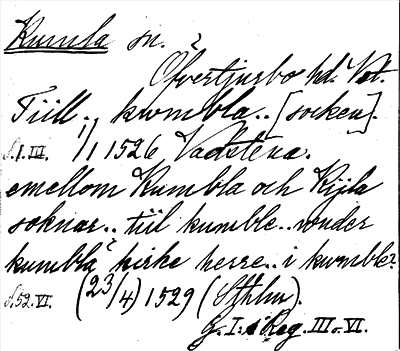 Kumla sn. ?
Öfvertjurbo hd. Vst.
Tiill.. kwmbla.. [socken].
S. 1. III. 1/1 1526 Vadstena.
emellom Kumbla och Kijla
soknar.. tiil kumble.. vnder
kumbla kirke herre.. i kwmble?
S. 52. VI. (23/4) 1529 (Sthlm).
G. I:s Reg. III o. VI.